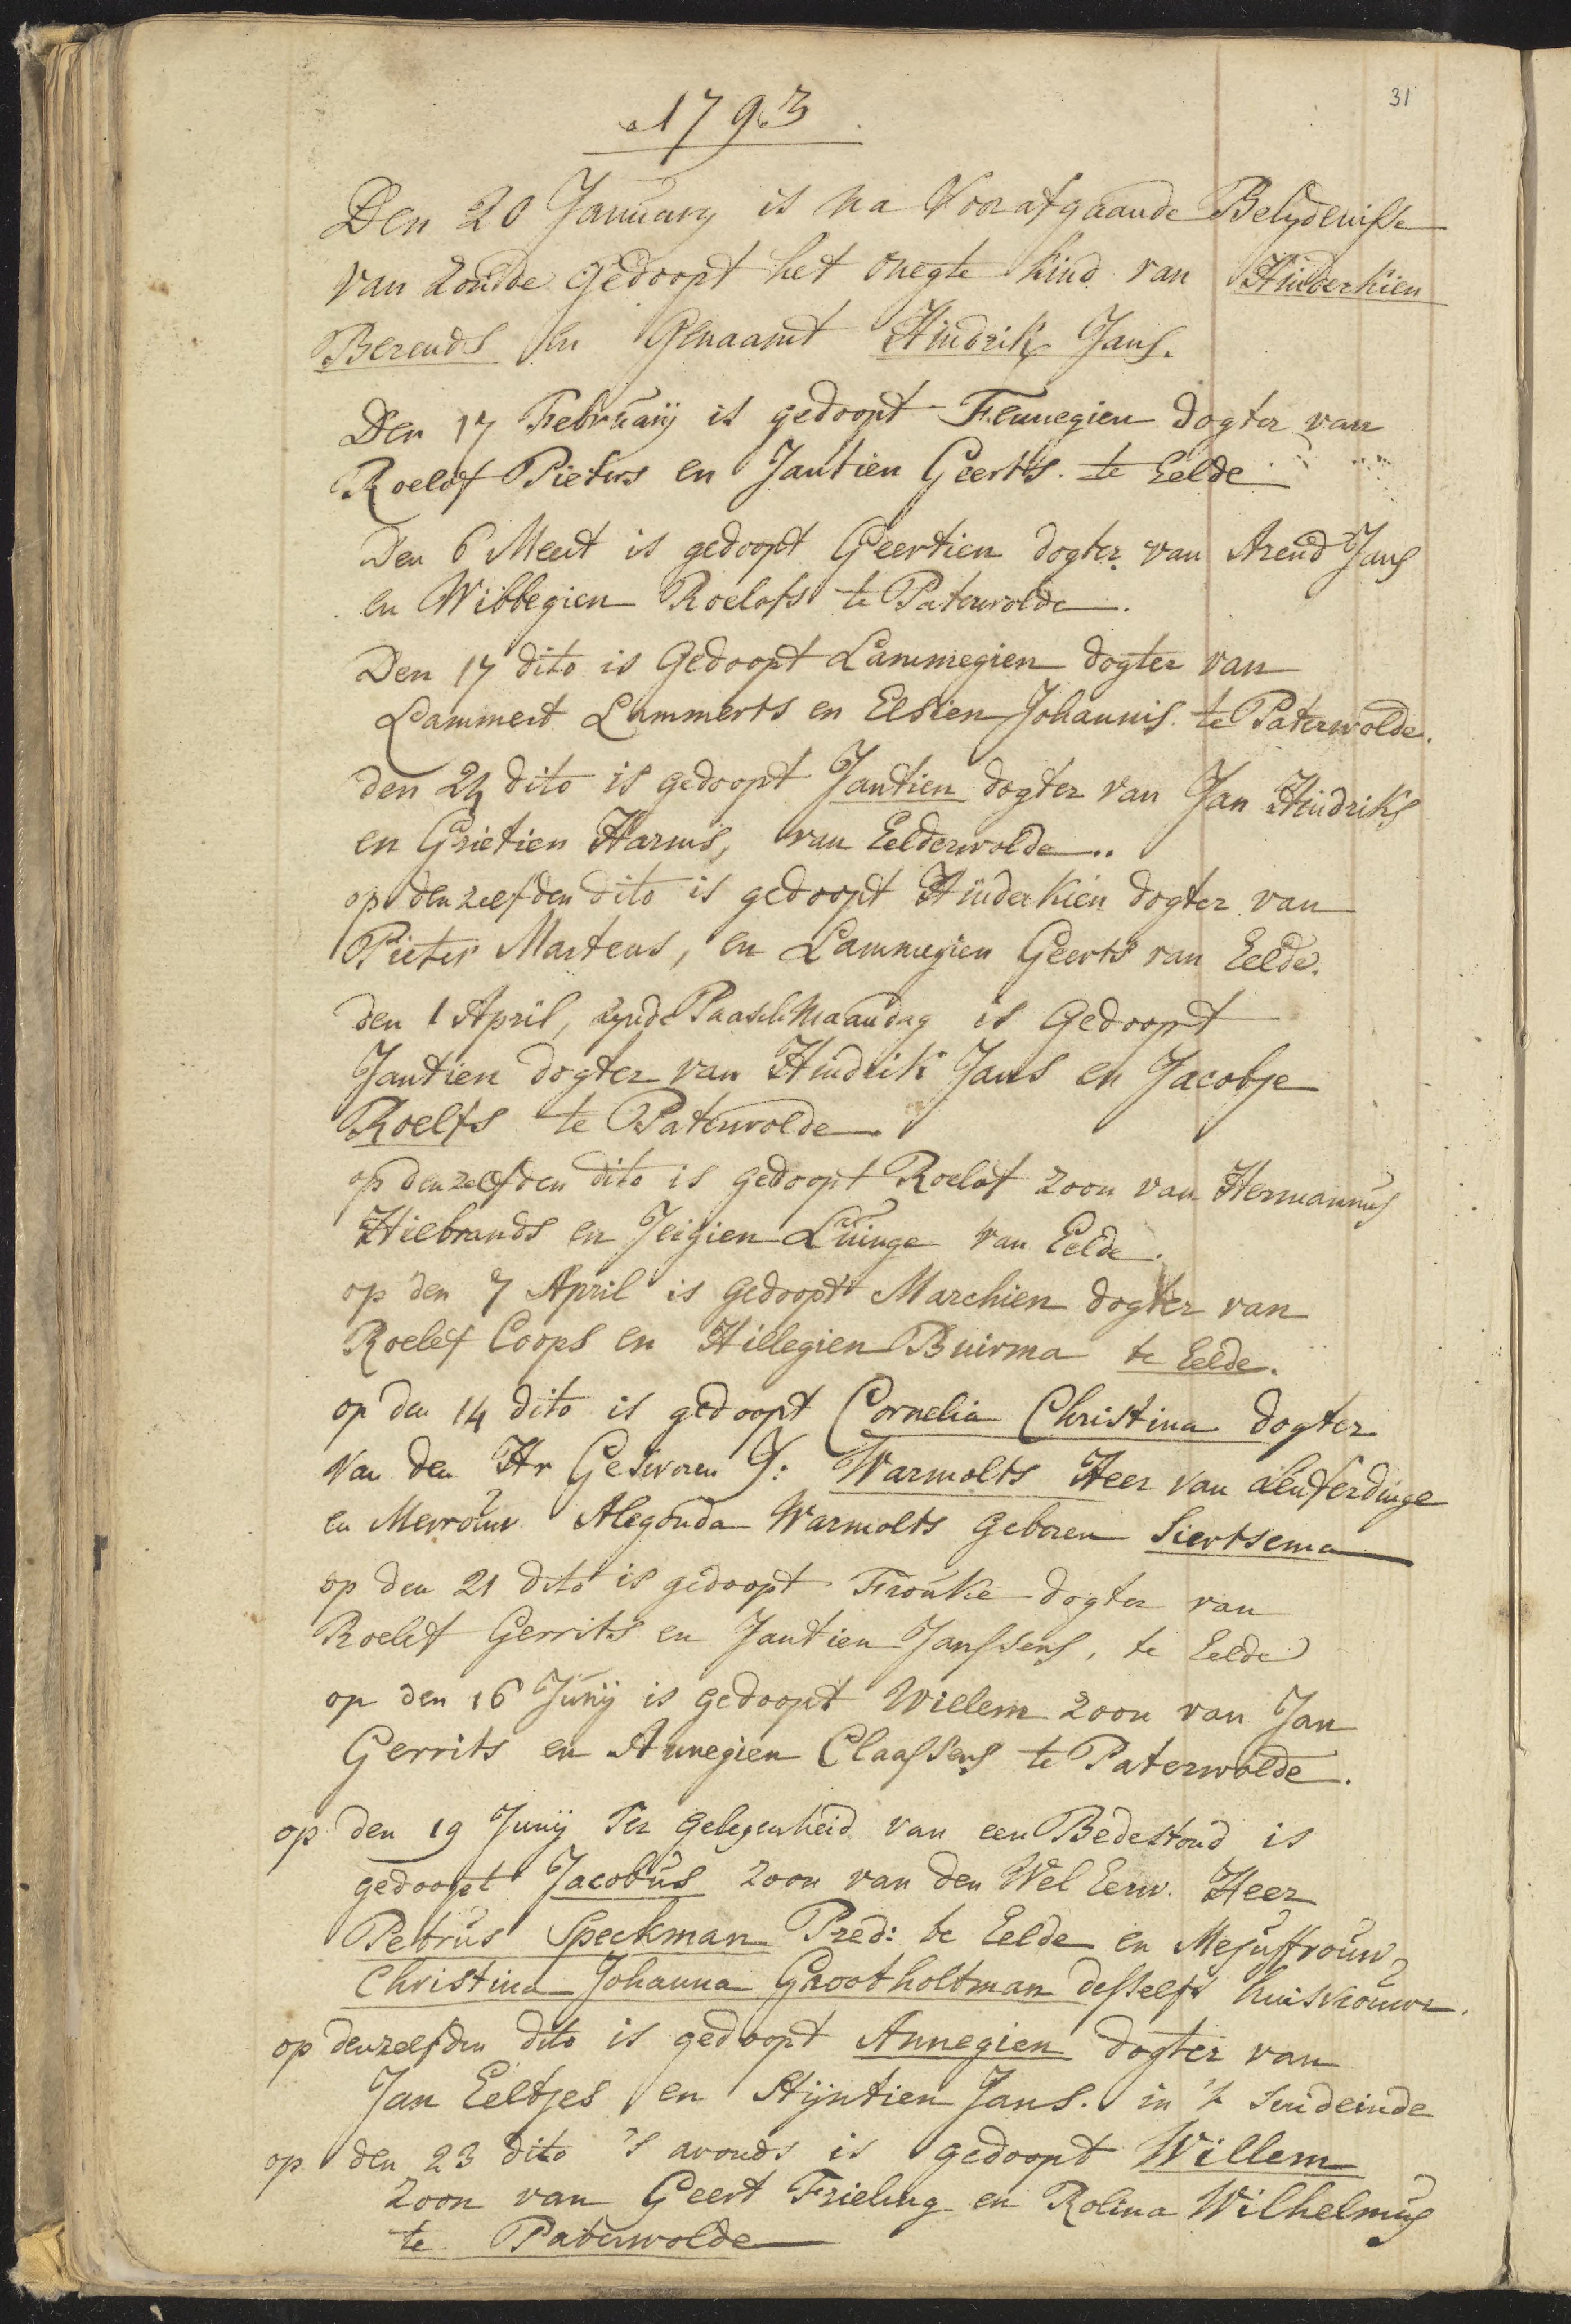 31
1793
Den 20 January is na Voorafgaande Belydenisse
van Zonde gedoopt het onegte kind van Hinderkien
Berends en Genaamt Hindrik Jans.
Den 17 February is gedoopt Fennegien dogter van
Roelof Pieters en Jantien Geerts. te Eelde
Den 6 Meert is gedoopt Geertien dogter van Arend Jans
en Wibbegien Roelofs te Paterwolde.
Den 17 dito is Gedoopt Lammegien dogter van
Lammert Lammerts en Elsien Johannis. te Paterwolde.
den 24 dito is gedoopt Jantien dogter van Jan Hindriks
en Grietien Harms, van Eelderwolde..
op denzelfden dito is gedoopt Hinderkien dogter van
Pieter Martens, en Lammegien Geerts van Eelde.
den 1 April, zynde Paasch Maandag is Gedoopt
Jantien dogter van Hindrik Jans en Jacobje
Roelfs te Paterwolde
op denzelfden dito is gedoopt Roelof zoon van Hermannus
Hiebrands en Jeigien Luinge van Eelde.
op den 7 April is gedoopt Marchien dogter van
Roelef Coops en Hillegien Buirma te Eelde.
op den 14 dito is gedoopt Cornelia Christina dogter
van den Hr Gesworen J: Warmolts Heer van
en Mevrouw Alegonda Warmolts geboren Siertsema
op den 21 dito is gedoopt Frouke dogter van
Roelef Gerrits en Jantien Janssens, te Eelde
op den 16 Junij is gedoopt Willem zoon van Jan
Gerrits en Annegien Claassens te Paterwolde.
op den 19 Junij Ter gelegenheid van een Bedestond is
gedoopt Jacobus zoon van den Wel Eerw. Heer
Petrus Speckman Pred: te Eelde en Mejuffrouw
Christina Johanna Grootholtman desselfs huisvrouwe.
op denzelfden dito is gedoopt Annegien dogter van
Jan Eeltjes en Stijntien Jans. in 't Suideinde
op den 23 dito 's avonds is gedoopt Willem
zoon van Geert Frieling en Rolina Wilhelmus
te Paterwolde